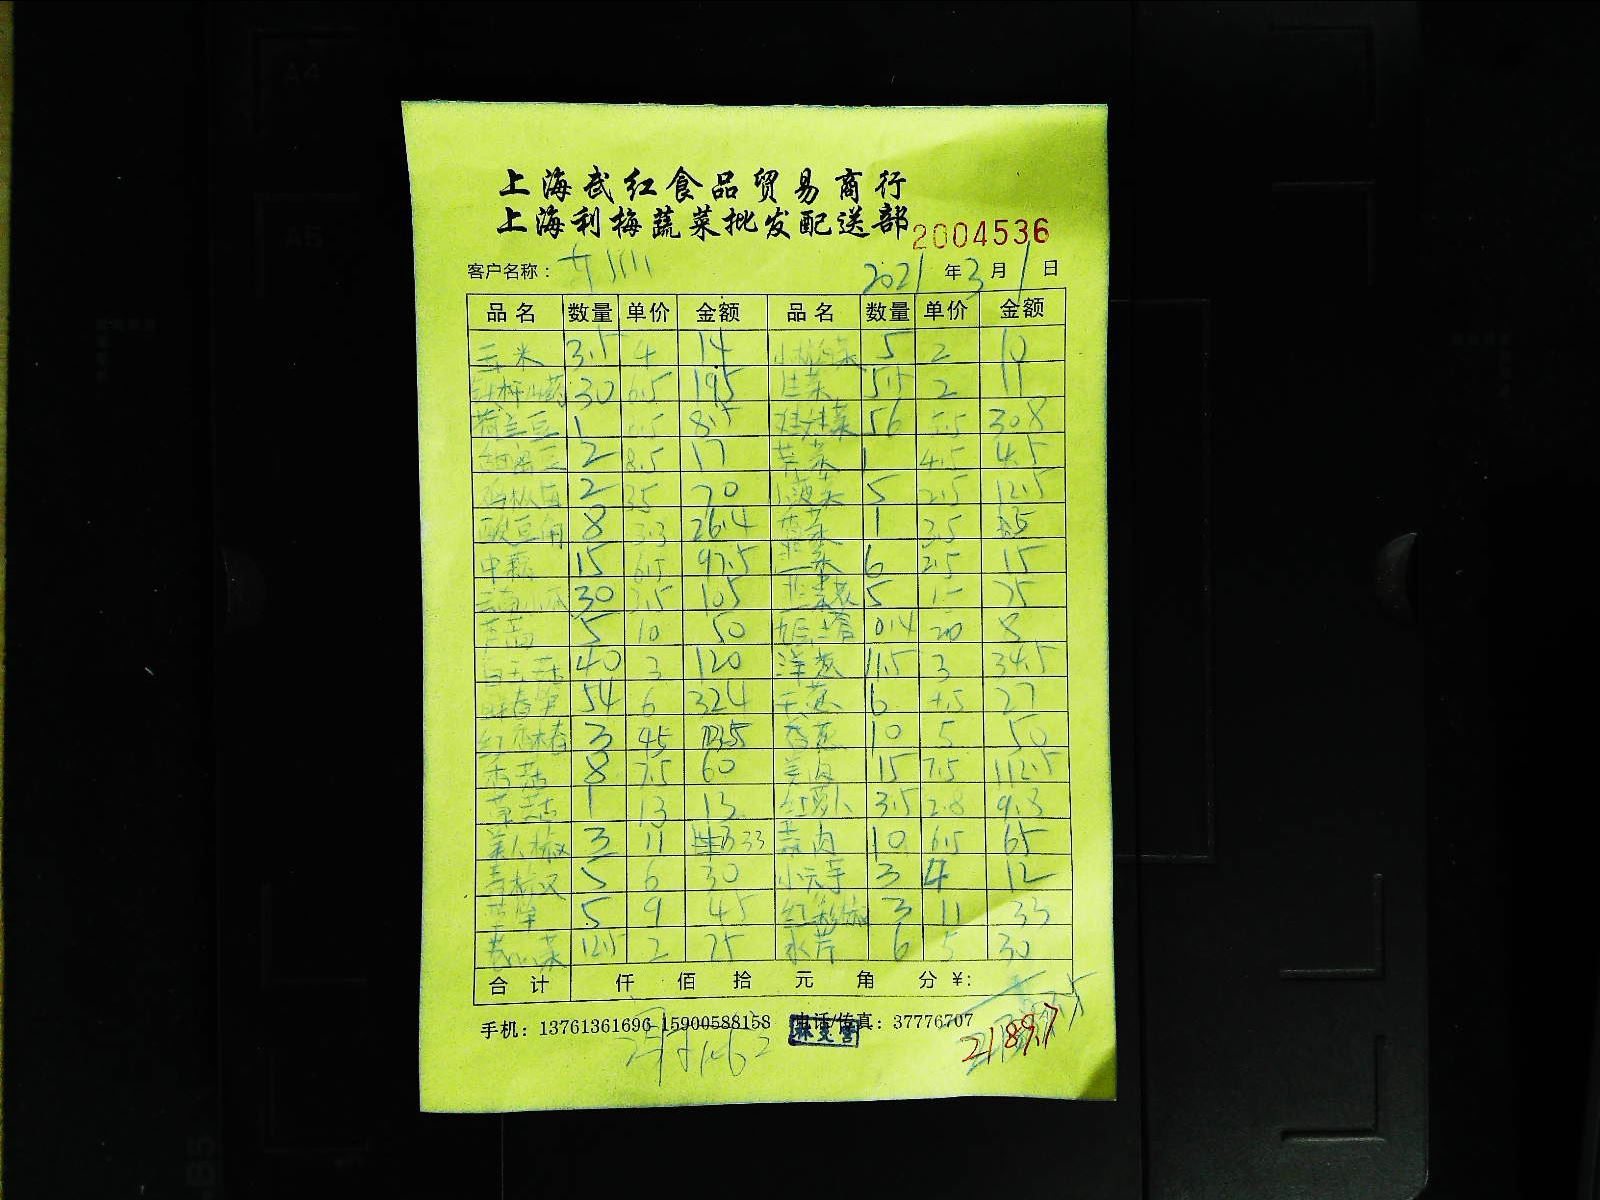 上海武红食品贸易商行
上海利梅蔬菜批发配送部 2004536
客户名称： 2021年3月1日
品名 数量 单价 金额 品名 数量 单价 金额
玉米 3.5 4 14 5 2 10
铁杆山药 30 6.5 195 生菜 5.5 2 11
荷兰豆 1 8.5 8.5 娃娃菜 56 5.5 308
甜蜜豆 2 8.5 17 芹菜 1 4.5 4.5
2 35 70 小菠菜 5 2.5 12.5
酸豆角 8 3.3 26.4 1 3.5
中藕 15 6.5 97.5 韭菜 6 2.5 15
云南小瓜 30 3.5 105 韭菜花 5 25
芦蒿 5 10 50 九层塔 0.4 20 8
白玉菇 40 3 120 洋葱 11.5 3 34.5
54 6 324 大葱 6 4.5 27
3 45 香葱 10 5 50
香菇 8 7.5 60 姜肉 15 7.5 112.5
草菇 1 13 13 红萝卜 3.5 2.8 9.8
美人椒 3 11 33 蒜肉 10 6.5 65
青椒 5 6 30 小元芋 3 4 12
5 9 45 3 11 33
12.5 2 25 水芹 6 5 30
合计 仟 佰 拾 元 角 分 ¥:
手机：13761361696 15900588158 电话/传真：37776707
2189.7